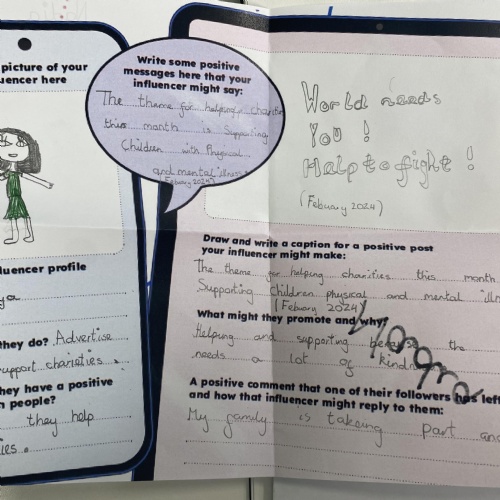 picture of your
uencer here
luencer profile
ya
they do? Advertise
support charieties.
hey have a positive
n people?
they help
ies.
Write some positive
messages here that your
influencer might say:
The theme for helping charities
this month is Supporting
Children with Physical
and mental illness
(Febuary 2024)
World needs
You !
Help to fight !
(Febuary 2024)
Draw and write a caption for a positive post
your influencer might make:
The theme for helping charities this month
Supporting Children physical and mental illn
(Febuary 2024)
What might they promote and why?
Helping and supporting because the
needs a lot of kindn
A positive comment that one of their followers has left
and how that influencer might reply to them:
My family is takeing part and